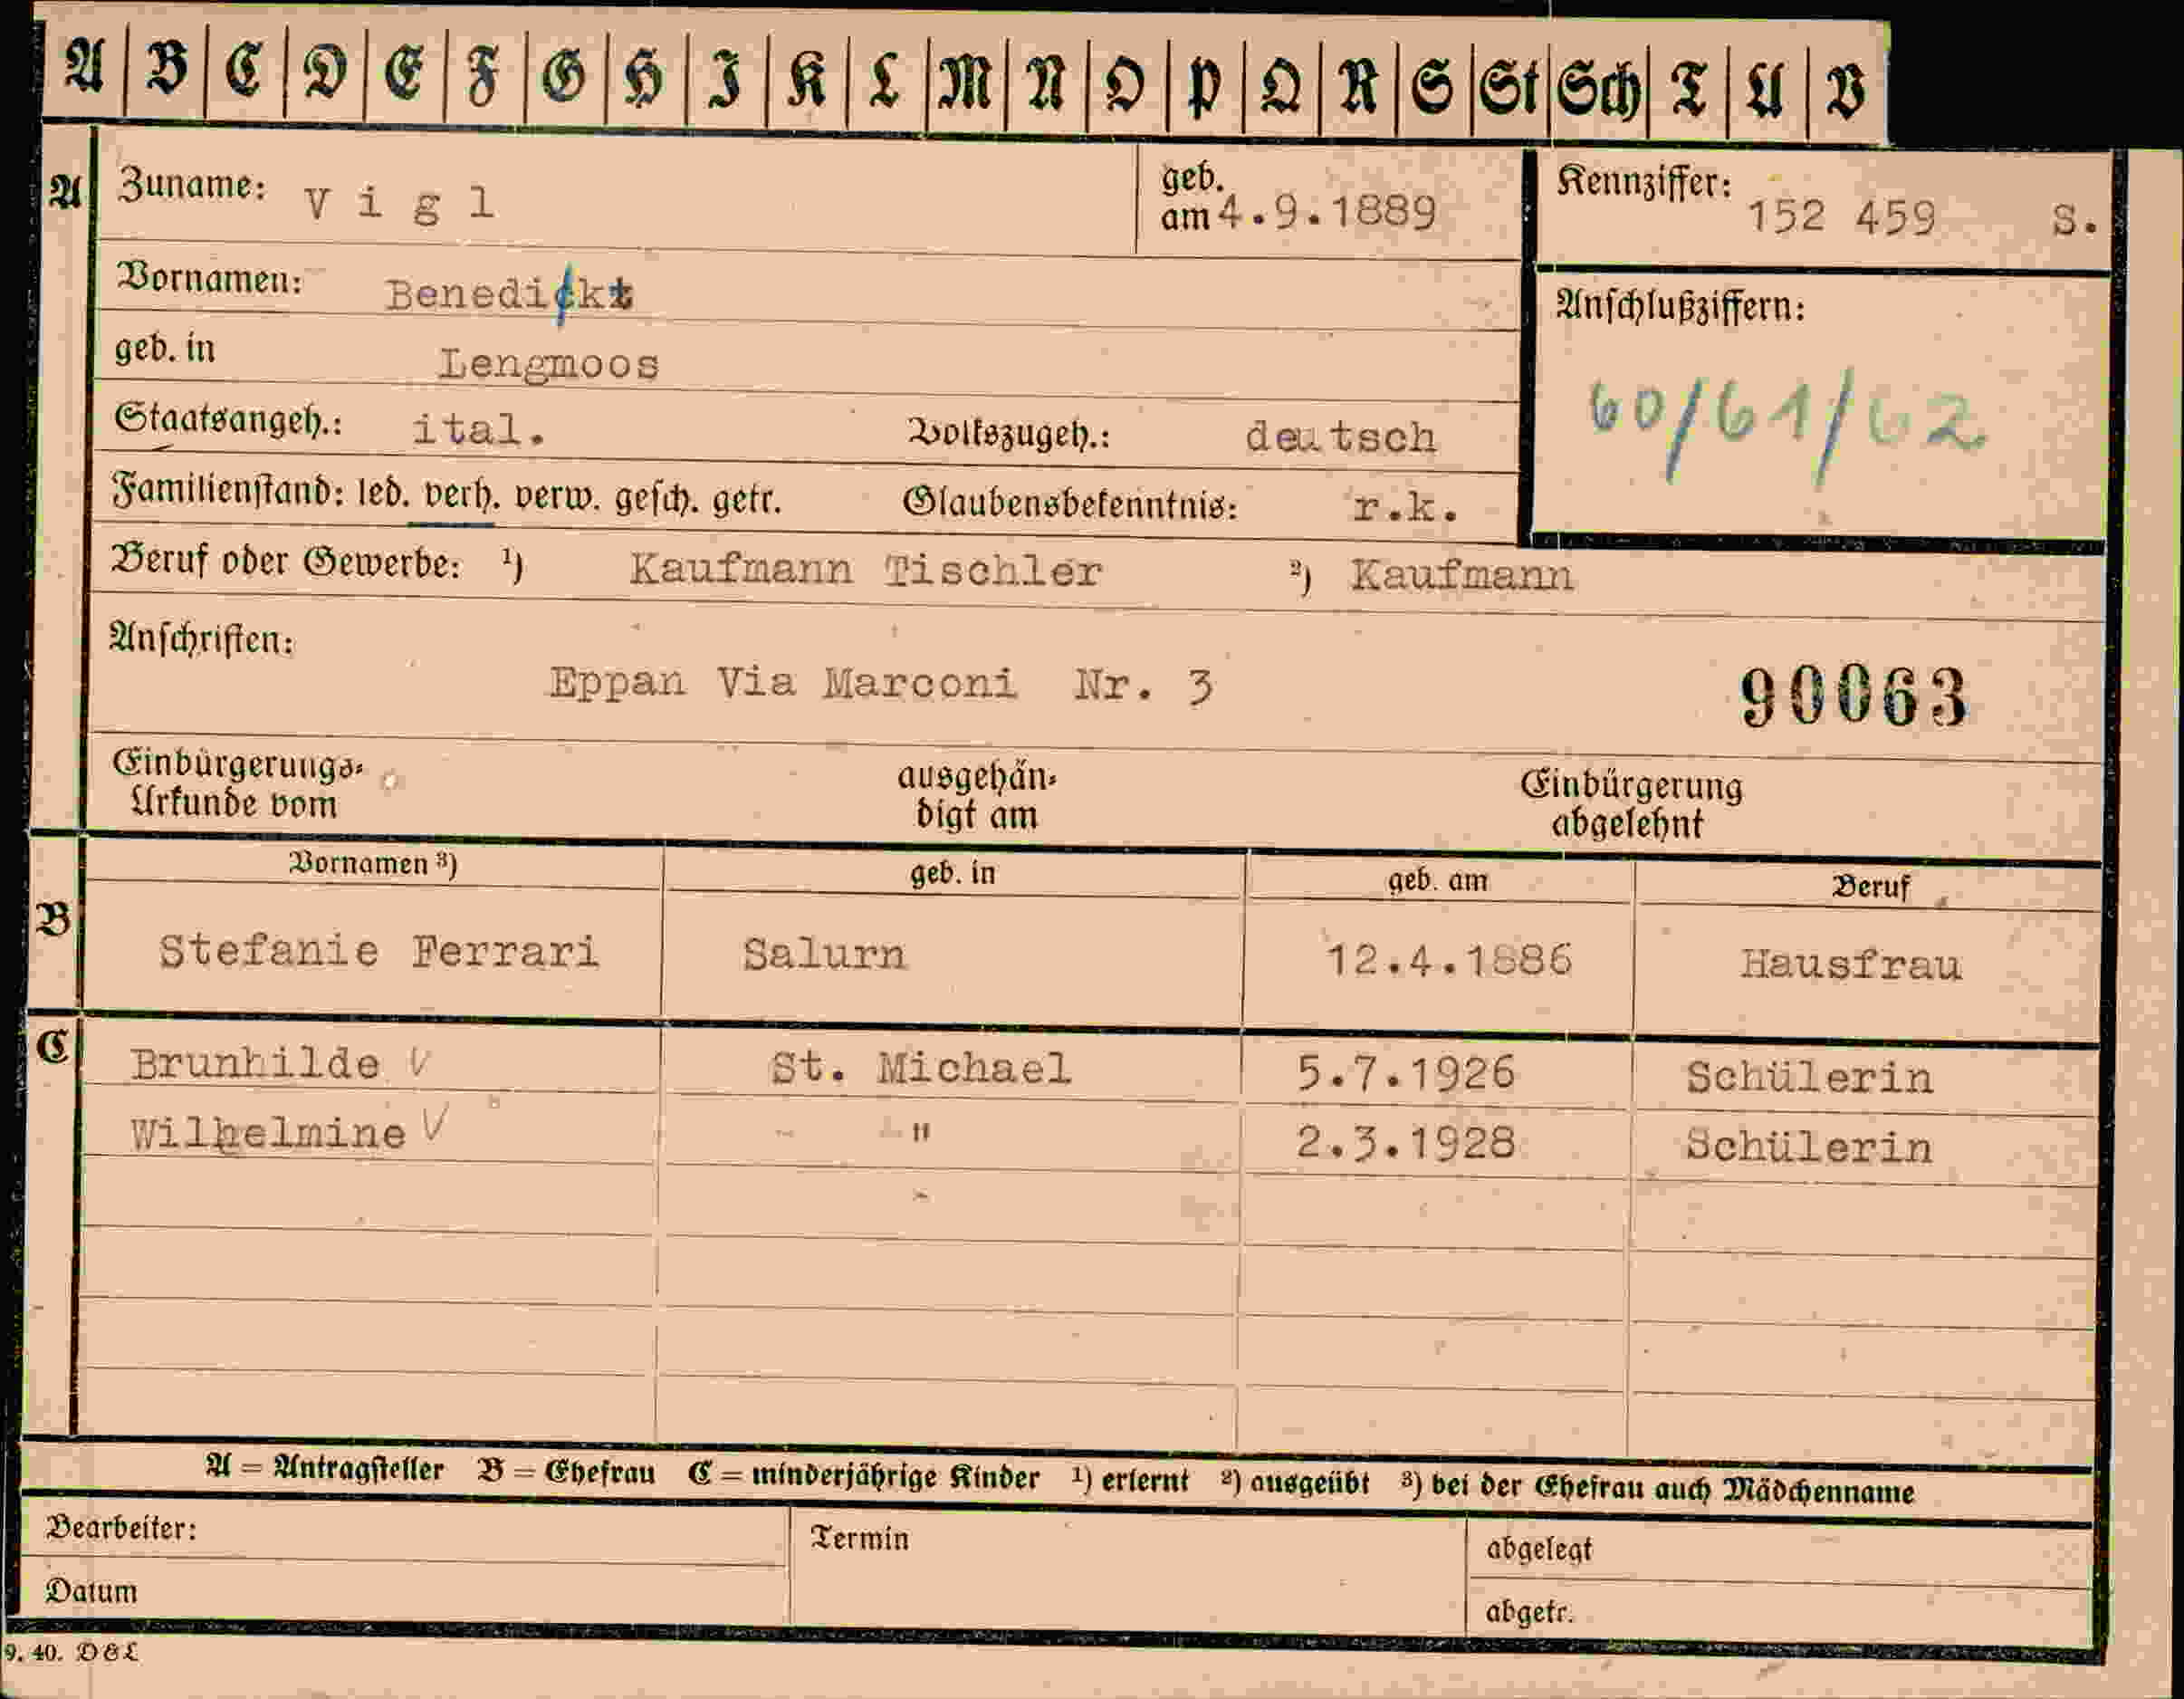 A B C D E F G H I K L M N O P Q R S St Sch T U V
A Zuname: V i g l geb. am 4.9.1889 Kennziffer: 152 459 S.
Vornamen: Benedickt
Anschlußziffern:
geb. in Lengmoos
60/61/62
Staatsangeh.: ital. Volkszugeh.: deutsch
Familienstand: led. verh. verw. gesch. getr. Glaubensbekenntnis: r.k.
Beruf oder Gewerbe: ¹) Kaufmann Tischler ²) Kaufmann
Anschriften:
Eppan Via Marconi Nr. 3 90063
Einbürgerungs- ausgehän- Einbürgerung
Urkunde vom digt am abgelehnt
Vornamen ³) geb. in geb. am Beruf
B Stefanie Ferrari Salurn 12.4.1886 Hausfrau
C Brunhilde V St. Michael 5.7.1926 Schülerin
Wilhelmine V - " 2.3.1928 Schülerin
A = Antragsteller B = Ehefrau C = minderjährige Kinder ¹) erlernt ²) ausgeübt ³) bei der Ehefrau auch Mädchenname
Bearbeiter: Termin abgelegt
Datum abgetr.
9. 40. D&L